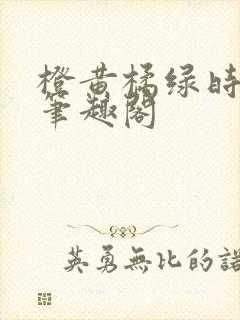 橙黄橘绿时
笔趣阁
英勇無比的諾